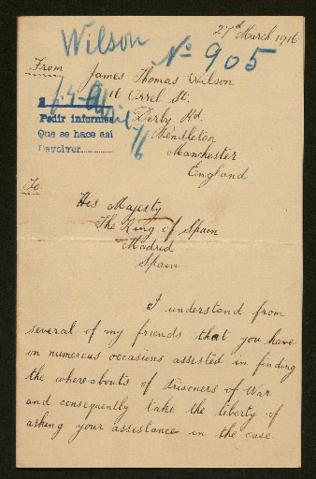 27th March 1916
Wilson
Nº 905
From
James Thomas Wilson
16 Orrel St.
Derby Rd.
Pendleton
Manchester
England
Pedir informes
Que se hace así
Devolver
To
His Majesty
The King of Spain
Madrid
Spain
I understand from
several of my friends that you have
on numerous occasions assisted in finding
the whereabouts of Prisoners of War
and consequently take the liberty of
asking your assistance in the case